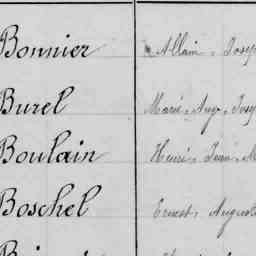 Bonnier Allain, Josep
Burel Marie, Aug, Josep
Boulain Henri, Jean, M
Boschel Ernest, Auguste